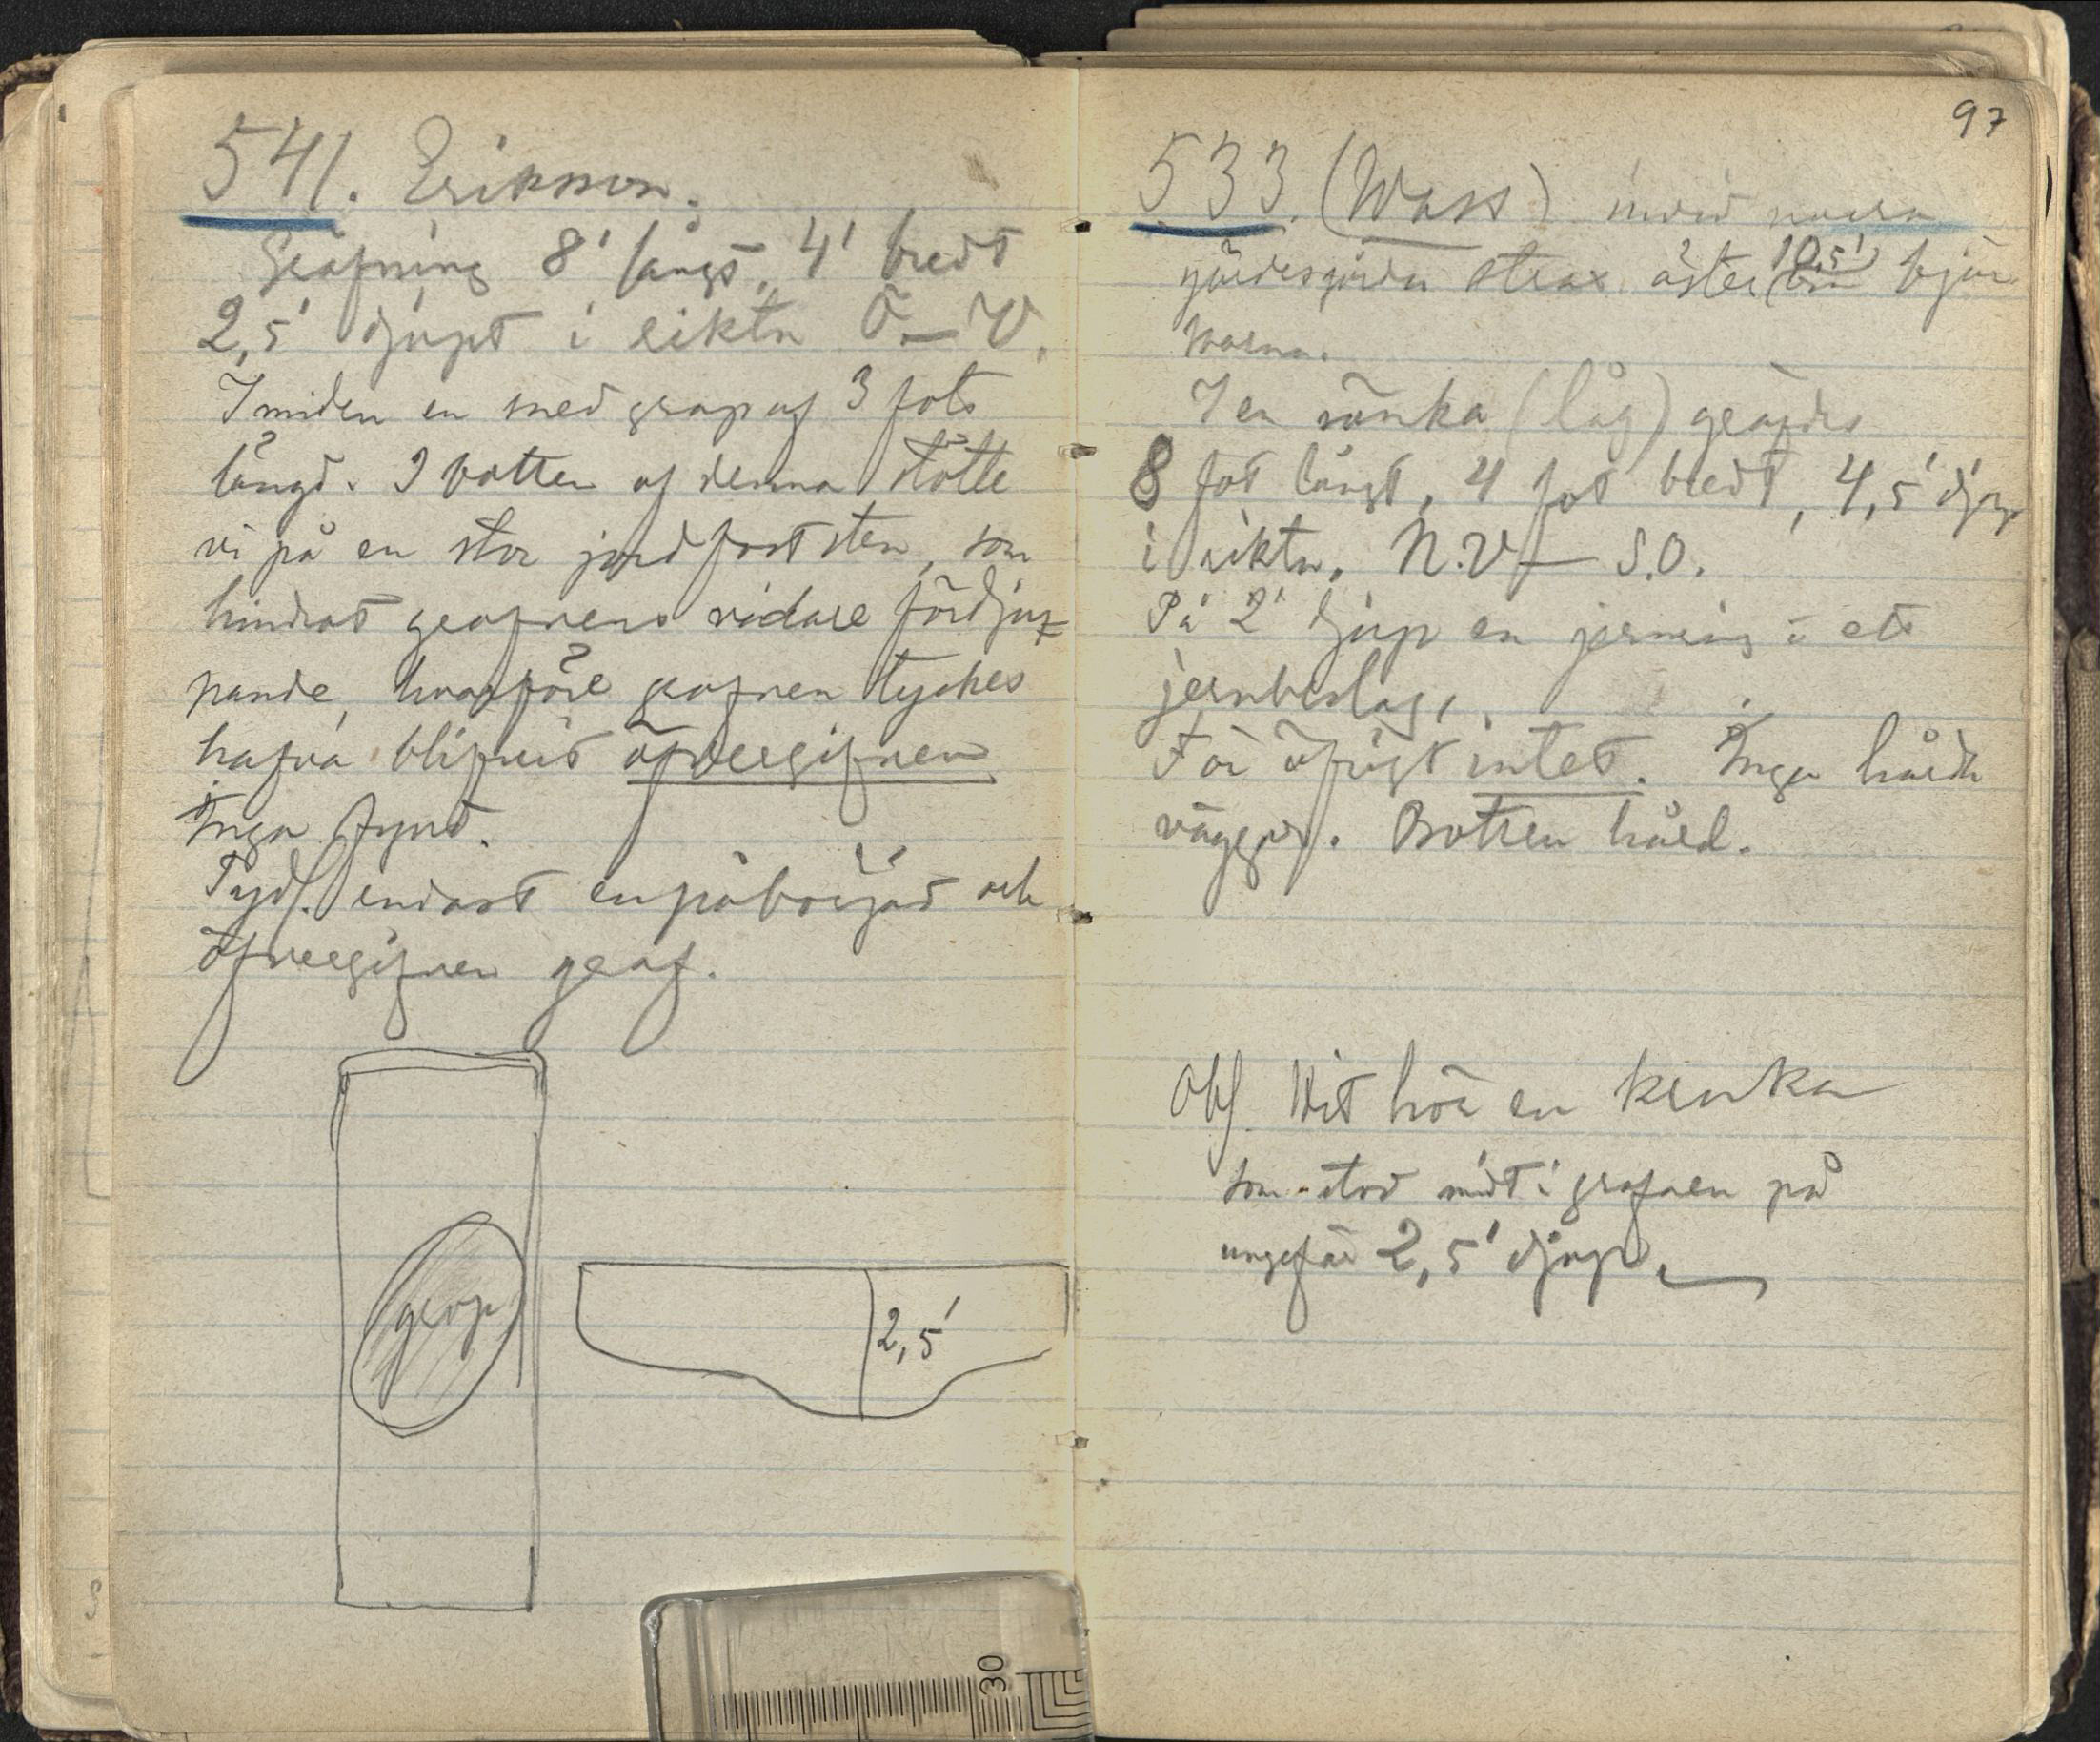 541. Eriksson.
Gräfning 8' långt, 4' bredt
2,5' djupt i riktn Ö–V.
I midten en med grop af 3 fots
längd. I botten af denna stötte
vi på en stor jordfast sten, som
hindrat grafvens vidare fördju-
pande, hvarföre grafven tyckes
hafva blifvit öfvergifven
Inga fynd.
Tydl. endast en påbörjad och
öfvergifven graf.
grop
2,5'
97
533. (Wass) invid norra
gärdesgården strax öster 10,5' björ
karna.
I en sänka (låg) gräfdes
8 fot långt, 4 fot bredt, 4,5' djup
i riktn. N.V – S.O.
På 2' djup en jernring o ett
jernbeslag,
För öfrigt intet. Inga hårda
väggar. Botten hård.
Obs. Hit hör en kruka
som stod midt i grafven på
ungefär 2,5' djup.
30